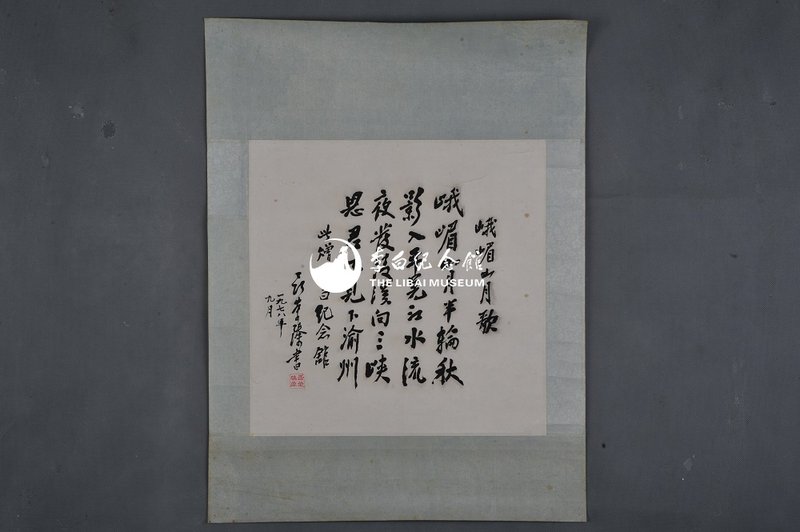 峨嵋山月歌
峨嵋山月半輪秋
影入平羌江水流
夜發清溪向三峡
思君不見下渝州
此赠李白纪念馆
书
一九七八年
九月
李白纪念馆
THE LIBAI MUSEUM